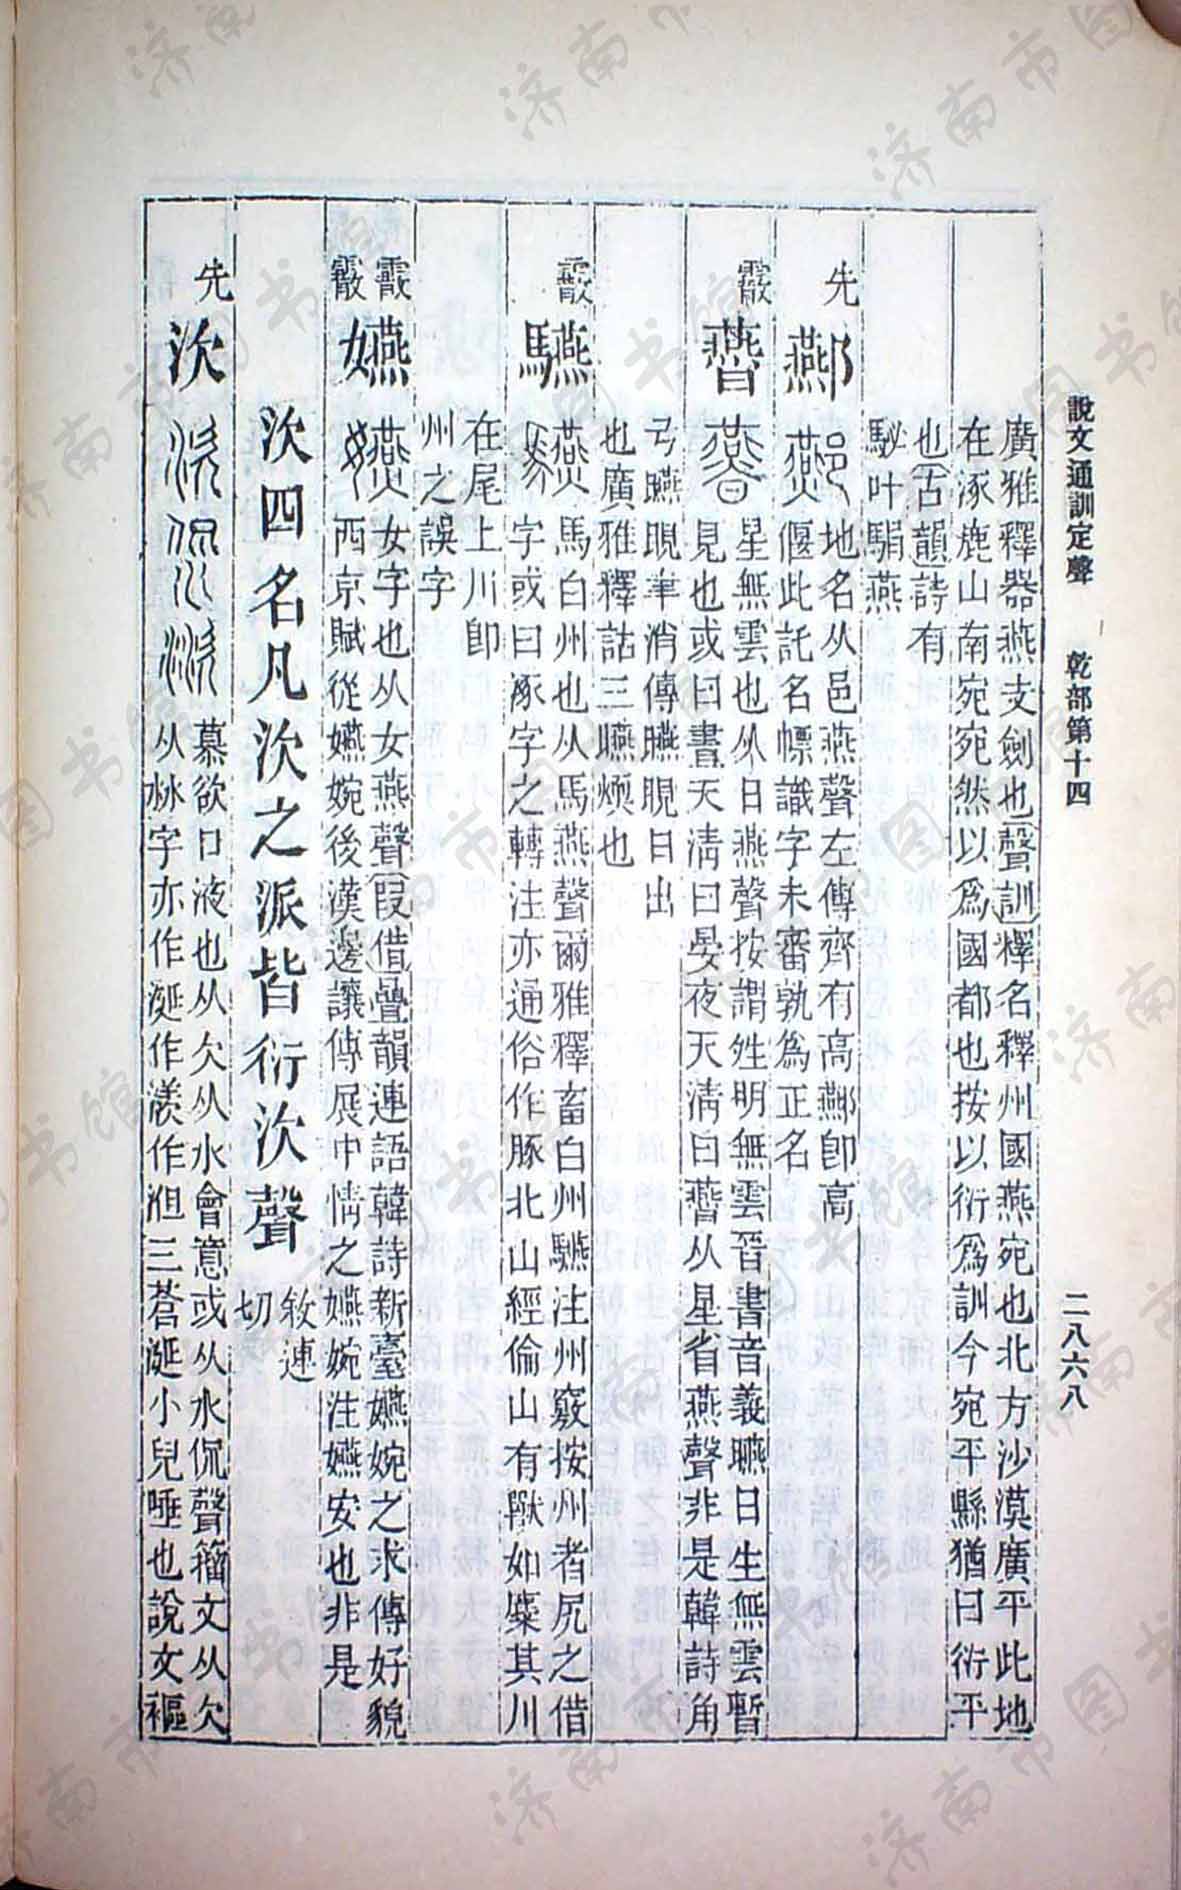 說文通訓定聲　乾部第十四　二八六八
廣雅釋器燕支劍也聲訓釋名釋州國燕宛也北方沙漠廣平此地
在涿鹿山南宛宛然以爲國都也按以衍爲訓今宛平縣猶曰衍平
也古韻詩有
駜叶駽燕
先
酀
地名从邑燕聲左傳齊有高酀卽高
偃此託名幖識字未審孰爲正名
霰
星無雲也从日燕聲按謂姓明無雲晉書音義曣日生無雲暫
見也或曰晝天淸曰晏夜天淸曰㬫从星省燕聲非是韓詩角
弓曣晛聿消傳曣晛日出
也廣雅釋詁三曣煗也
霰
驠
馬白州也从馬燕聲爾雅釋畜白州驠注州竅按州者尻之借
字或曰豖字之轉注亦通俗作豚北山經倫山有獸如麋其川
在尾上川卽
州之誤字
霰
霰
嬿
女字也从女燕聲叚借疊韻連語韓詩新臺嬿婉之求傳好貌
西京賦從嬿婉後漢邊讓傳展中情之嬿婉注嬿安也非是
㳄四名凡㳄之派皆衍㳄聲
敘連
切
先
㳄
慕欲口液也从欠从水會意或从水侃聲籒文从欠
从沝字亦作涎作漾作泹三蒼涎小兒唾也說文䙔